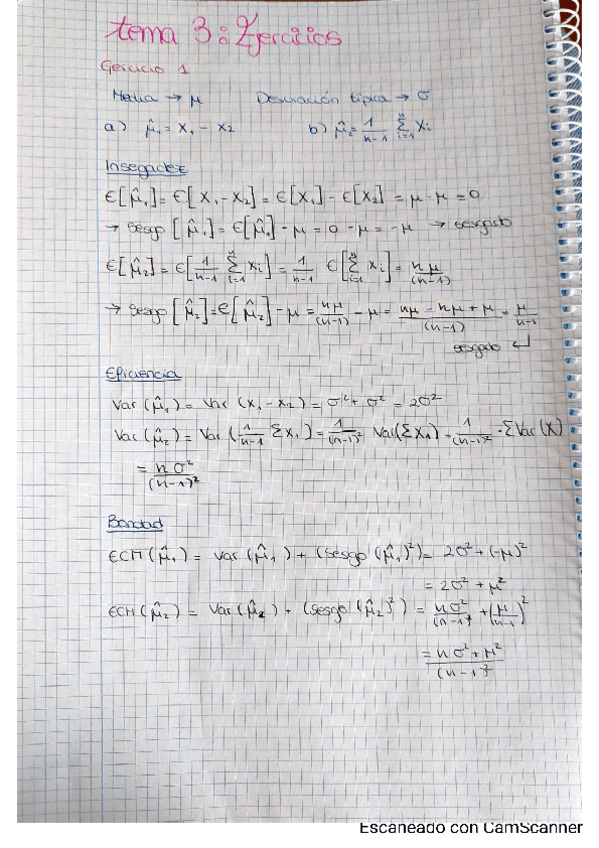 tema 3: Ejercicios
Ejercicio 1
Media → μ Desviación típica → σ
a) μ̂₁ = X₁ - X₂ b) μ̂₂ = 1/(n-1) Σᵢ₌₁ⁿ Xᵢ
Insegadez
E[μ̂₁] = E[X₁ - X₂] = E[X₁] - E[X₂] = μ - μ = 0
→ Sesgo [μ̂₁] = E[μ̂₁] - μ = 0 - μ = -μ → sesgado
E[μ̂₂] = E[1/(n-1) Σᵢ₌₁ⁿ Xᵢ] = 1/(n-1) E[Σᵢ₌₁ⁿ Xᵢ] = nμ/(n-1)
→ Sesgo [μ̂₂] = E[μ̂₂] - μ = nμ/(n-1) - μ = (nμ - nμ + μ)/(n-1) = μ/(n-1)
sesgado ↵
Eficiencia
Var(μ̂₁) = Var(X₁ - X₂) = σ² + σ² = 2σ²
Var(μ̂₂) = Var(1/(n-1) ΣX₁) = 1/(n-1)² Var(ΣX₁) = 1/(n-1)² · ΣVar(X)
= nσ²/(n-1)²
Bondad
ECM(μ̂₁) = Var(μ̂₁) + (Sesgo(μ̂₁)²) = 2σ² + (-μ)²
= 2σ² + μ²
ECM(μ̂₂) = Var(μ̂₂) + (Sesgo(μ̂₂)²) = nσ²/(n-1)² + (μ/(n-1))²
= (nσ² + μ²)/(n-1)²
Escaneado con CamScanner